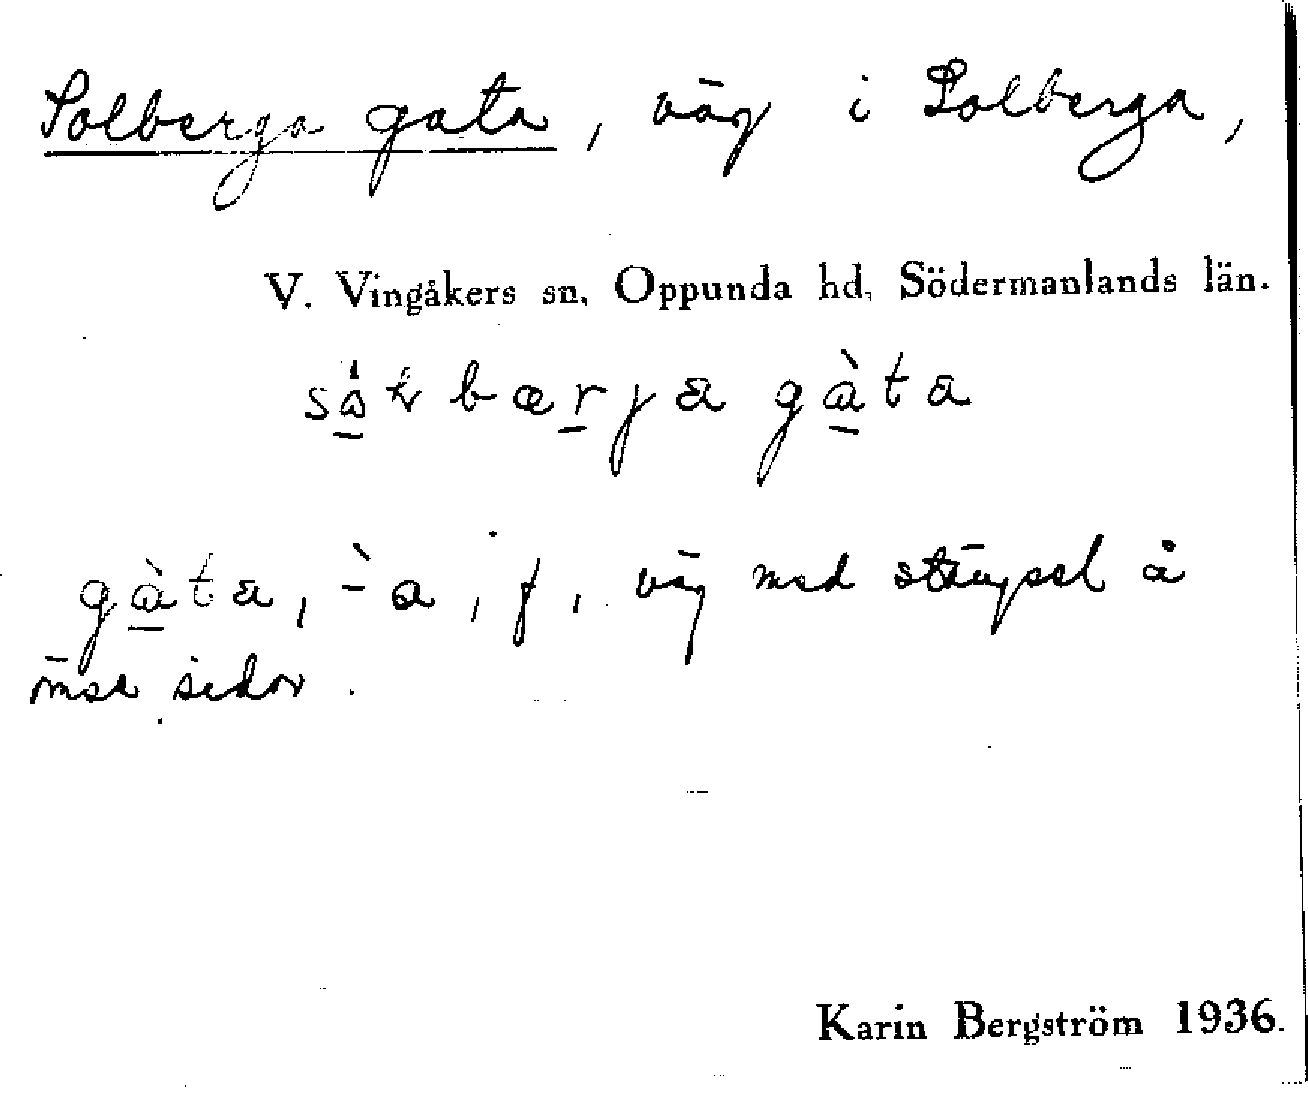 Solberga gata, väg i Solberga,
V. Vingåkers sn, Oppunda hd, Södermanlands län.
gàta
gàta, -̀a, f, väg med stängsel å
ömse sidor.
Karin Bergström 1936.